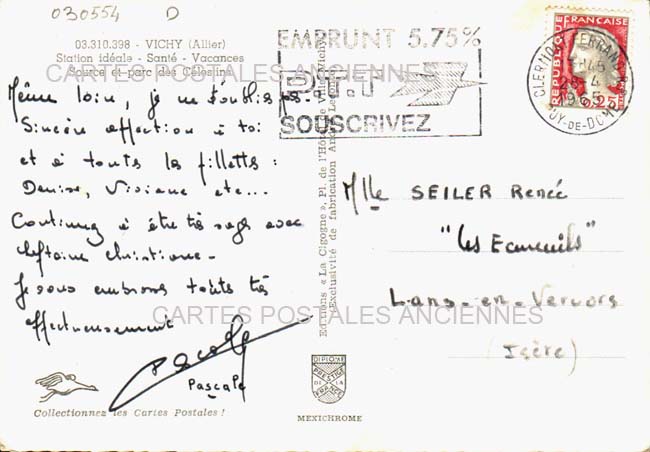 030554 D
03.310.398 - VICHY (Allier)
Station idéale - Santé - Vacances
Source et parc des Célestins
CARTES POSTALES ANCIENNES
Même loin, je ne t'oublie pas.
Sincère affection à toi
et à toutes les fillettes :
Denise, Viviane etc...
Continuez à être très sages avec
cheftaine christiane.
Je vous embrasse toutes très
affectueusement
Pascale
Pascale
Collectionnez les Cartes Postales !
Editions « La Cigogne », Pl. de l'Hôtel de Ville, Vichy
Exclusivité de fabrication André Leconte
EMPRUNT 5.75%
P.T.T
SOUSCRIVEZ
REPUBLIQUE FRANÇAISE
0,25
CLERMONT-FERRAND
1965
PUY-DE-DOME
Mlle SEILER Renée
"Les Ecureuils"
Lans-en-Vercors
(Isère)
CARTES POSTALES ANCIENNES
DIPLOME
PRESTIGE
DE LA
FRANCE
MEXICHROME